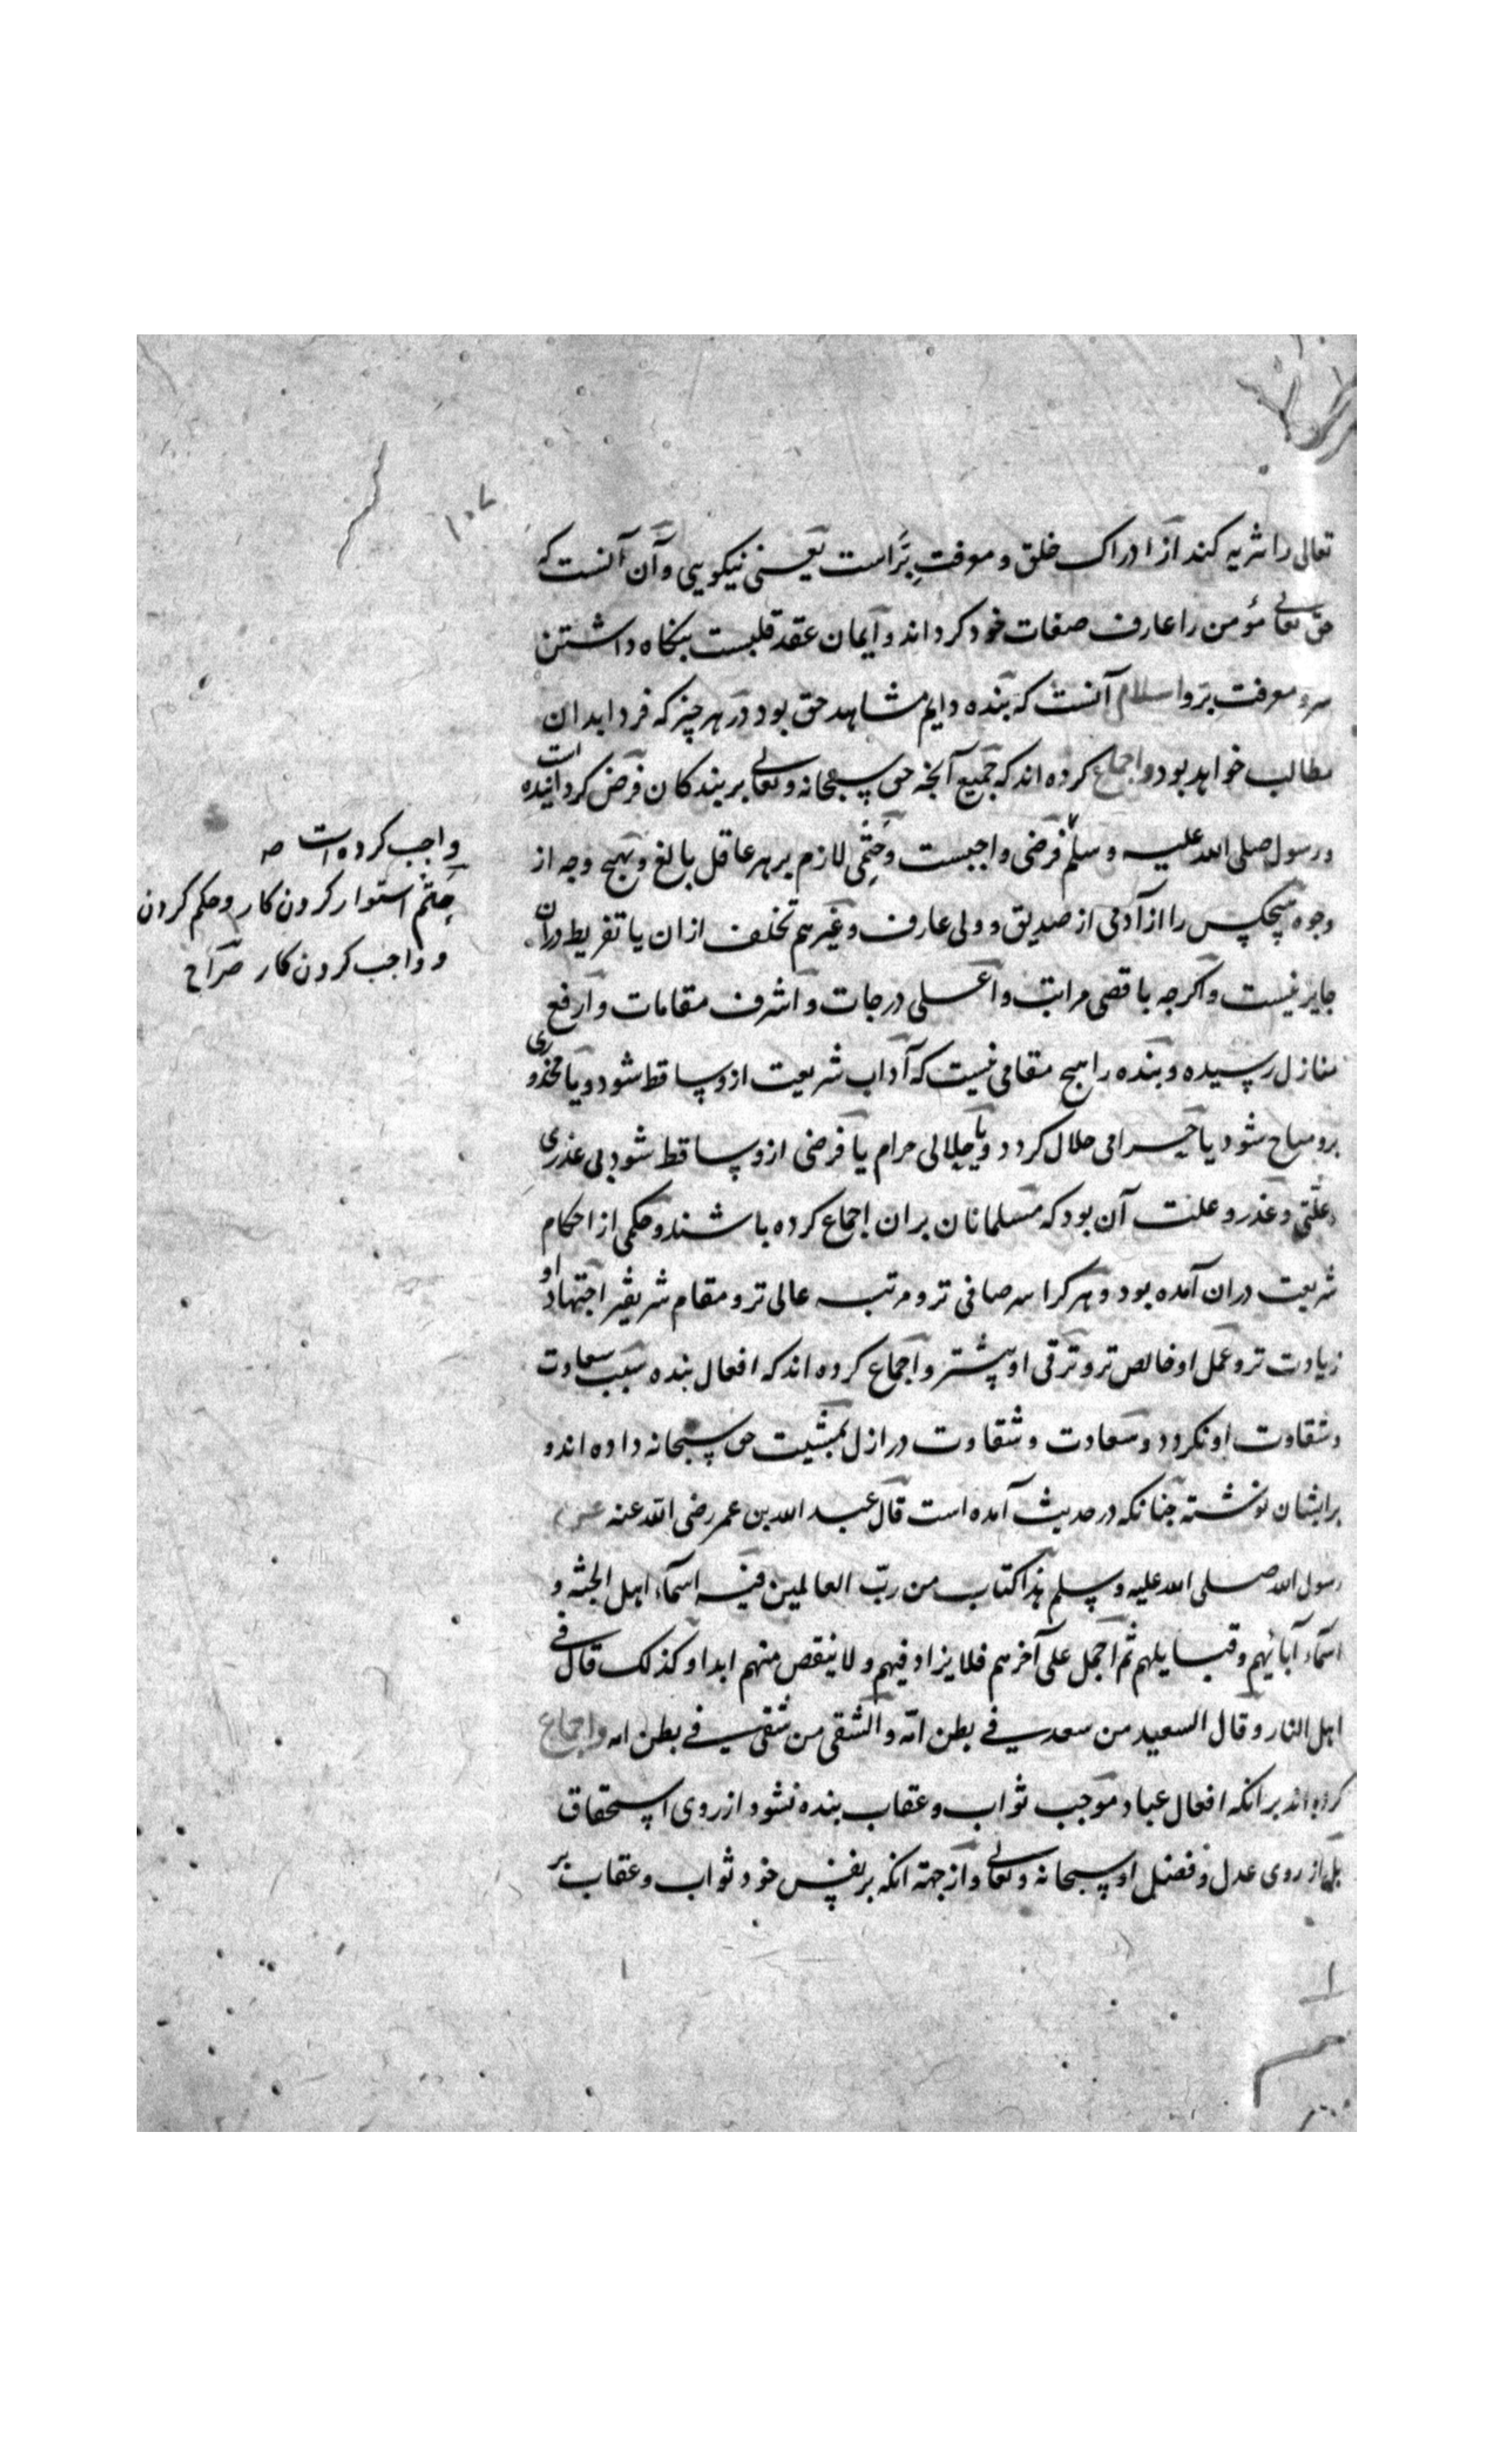 ۱۰۷
تعالی را تنزیه کند از ادراک خلق و معرفتِ بِرّ است یعنی نیکویی و آن آنست که
حق تعالی مؤمن را عارف صفات خود کرداند و ایمان عقد قلبست بنکاه داشتن
سر و معرفت برو اسلام آنست که بنده دایم مشاهد حق بود در هر چیز که فردا بدان
مطالب خواهد بود و اجماع کرده اند که جمیع آنجه حق سبحانه و تعالی بر بندکان فرض کردانیده است
و رسول صلی الله علیه و سلم فرضی واجبست و حَتْمِی لازم بر هر عاقل بالغ و بهیج وجه از
وجوه هیچکس را از آدمی از صدیق و ولی عارف و غیرهم تخلف از ان یا تفریط دران
جایز نیست و اکرجه باقصی مراتب و اعلی درجات و اشرف مقامات و ارفع
منازل رسیده و بنده را هیج مقامی نیست که آداب شریعت ازو ساقط شود و یا محذوری
برو مباح شود یا حرامی حلال کردد و یا حلالی حرام یا فرضی ازو ساقط شود بی عذری
و علتی و عذر و علت آن بود که مسلمانان بران اجماع کرده باشند و حکمی از احکام
شریعت دران آمده بود و هر کرا سر صافی تر و مرتبه عالی تر و مقام شریفتر اجتهاد او
زیادت تر و عمل او خالص تر و ترقی او بیشتر و اجماع کرده اند که افعال بنده سبب سعادت
و شقاوت او نکردد و سعادت و شقاوت در ازل بمشیت حق سبحانه داده اند و
بر ایشان نوشته جنانکه در حدیث آمده است قال عبد الله بن عمر رضی الله عنه
رسول الله صلی الله علیه و سلم هذا کتاب من ربّ العالمین فیه اسماء اهل الجنّه و
اسماء آبائهم و قبایلهم ثم اجمل علی آخرهم فلا یزاد فیهم و لا ینقص منهم ابدا و کذلک قال فی
اهل النار و قال السعید من سعد فی بطن امّه و الشقی من شقی فی بطن امه و اجماع
کرده اند بر آنکه افعال عباد موجب ثواب و عقاب بنده نشود از روی استحقاق
بل از روی عدل و فضل او سبحانه و تعالی و از جهة آنکه بر نفس خود ثواب و عقاب بر
واجب کرده است صه
حتم استوار کردن کار و حکم کردن
و واجب کردن کار صراح